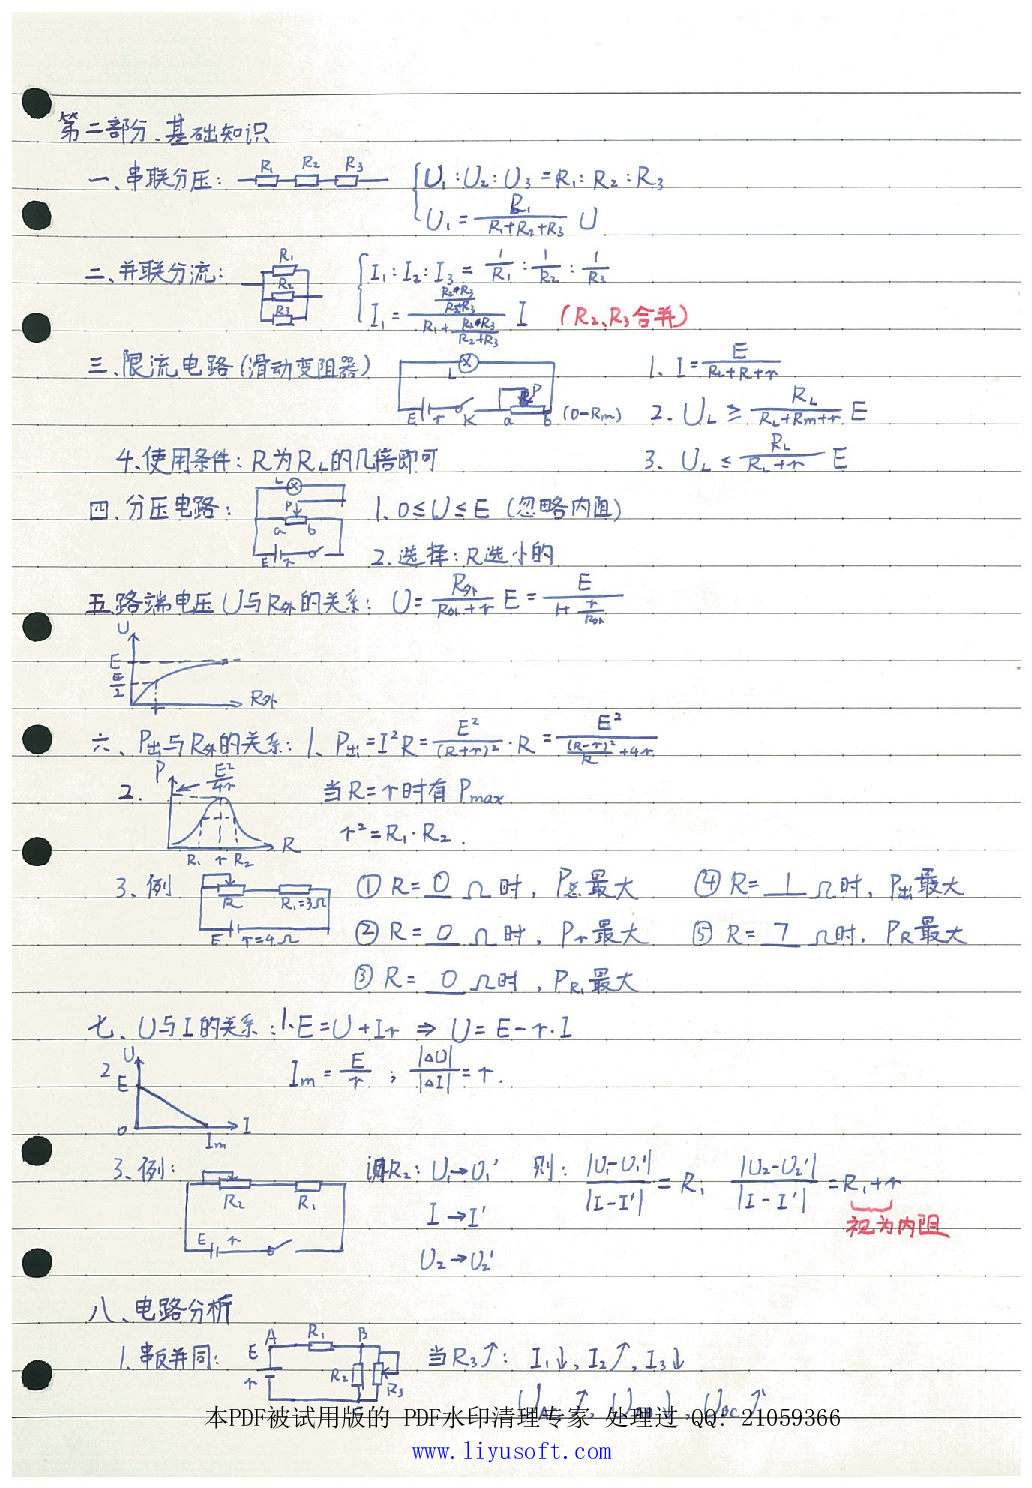 第二部分、基础知识
一、串联分压: R₁ R₂ R₃ U₁:U₂:U₃=R₁:R₂:R₃
U₁=R₁/(R₁+R₂+R₃) U
二、并联分流: R₁ R₂ R₃ I₁:I₂:I₃=1/R₁:1/R₂:1/R₃
I₁=(R₂•R₃/(R₂+R₃))/(R₁+R₂•R₃/(R₂+R₃)) I (R₂、R₃合并)
三、限流电路(滑动变阻器) L E r K a P b (0-Rm) 1. I=E/(R_L+R+r)
2. U_L≥R_L/(R_L+Rm+r) E
4.使用条件: R为R_L的几倍即可 3. U_L≤R_L/(R_L+r) E
四、分压电路: L P a b E r 1. 0≤U≤E (忽略内阻)
2.选择: R选小的
五、路端电压U与R外的关系: U=R外/(R外+r) E=E/(1+r/R外)
U E E/2 r R外
六、P出与R外的关系: 1. P出=I²R=E²/(R+r)²·R=E²/((R-r)²/R+4r)
2. P E²/4r R₁ r R₂ R 当R=r时有Pmax
r²=R₁·R₂.
3.例 R R₁=3Ω E r=4Ω ① R=0Ω时, P总最大 ④ R=1Ω时, P出最大
② R=0Ω时, Pr最大 ⑤ R=7Ω时, P_R最大
③ R=0Ω时, P_R₁最大
七、U与I的关系: 1. E=U+Ir ⇒ U=E-r·I
2 U E 0 Im I Im=E/r ; |ΔU|/|ΔI|=r.
3.例: R₂ R₁ E r 调R₂: U₁→U₁' 则: |U₁-U₁'|/|I-I'|=R₁ |U₂-U₂'|/|I-I'|=R₁+r
I→I' 视为内阻
U₂→U₂'
八、电路分析
1.串反并同: E r A R₁ B R₂ R₃ 当R₃↑: I₁↓, I₂↑, I₃↓
本PDF被试用版的 PDF水印清理专家 处理过 QQ: 21059366
www.liyusoft.com